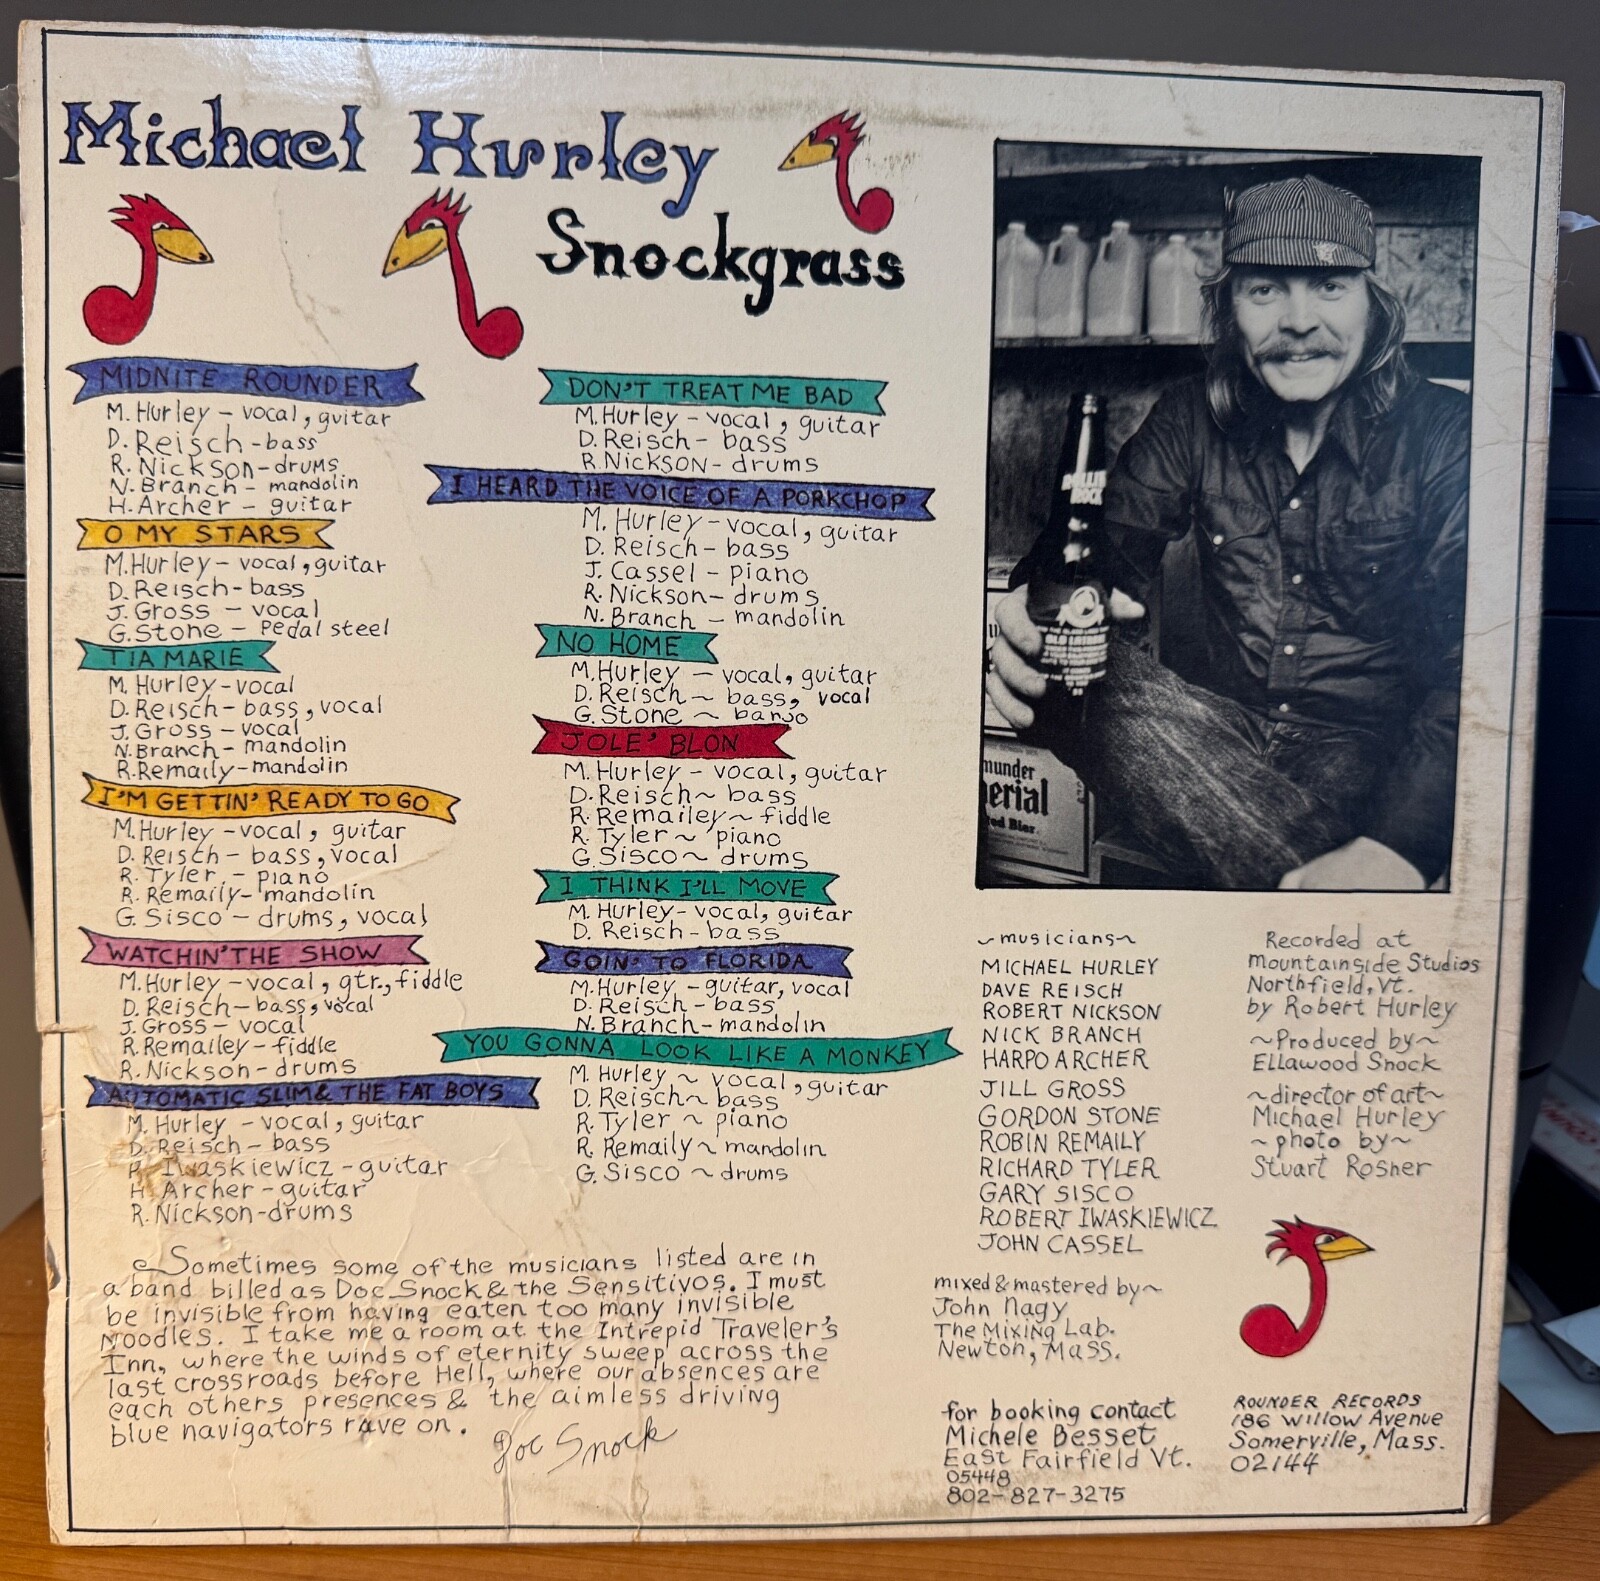 Michael Hurley
Snockgrass
MIDNITE ROUNDER
M. Hurley – vocal, guitar
D. Reisch - bass
R. Nickson - drums
N. Branch - mandolin
H. Archer - guitar
O MY STARS
M. Hurley – vocal, guitar
D. Reisch - bass
J. Gross – vocal
G. Stone – Pedal steel
TIA MARIE
M. Hurley - vocal
D. Reisch - bass, vocal
J. Gross - vocal
N. Branch - mandolin
R. Remaily - mandolin
I'M GETTIN' READY TO GO
M. Hurley - vocal, guitar
D. Reisch - bass, vocal
R. Tyler - piano
R. Remaily - mandolin
G. Sisco – drums, vocal
WATCHIN' THE SHOW
M. Hurley – vocal, gtr., fiddle
D. Reisch - bass, vocal
J. Gross - vocal
R. Remailey - fiddle
R. Nickson - drums
AUTOMATIC SLIM & THE FAT BOYS
M. Hurley – vocal, guitar
D. Reisch – bass
R. Iwaskiewicz - guitar
H. Archer - guitar
R. Nickson - drums
DON'T TREAT ME BAD
M. Hurley – vocal, guitar
D. Reisch - bass
R. Nickson - drums
I HEARD THE VOICE OF A PORKCHOP
M. Hurley – vocal, guitar
D. Reisch - bass
J. Cassel - piano
R. Nickson - drums
N. Branch – mandolin
NO HOME
M. Hurley – vocal, guitar
D. Reisch ~ bass, vocal
G. Stone ~ banjo
JOLE' BLON
M. Hurley – vocal, guitar
D. Reisch ~ bass
R. Remailey ~ fiddle
R. Tyler ~ piano
G. Sisco ~ drums
I THINK I'LL MOVE
M. Hurley - vocal, guitar
D. Reisch - bass
GOIN' TO FLORIDA
M. Hurley - guitar, vocal
D. Reisch - bass
N. Branch - mandolin
YOU GONNA LOOK LIKE A MONKEY
M. Hurley ~ vocal, guitar
D. Reisch ~ bass
R. Tyler ~ piano
R. Remaily ~ mandolin
G. Sisco ~ drums
Sometimes some of the musicians listed are in
a band billed as Doc Snock & the Sensitivos. I must
be invisible from having eaten too many invisible
noodles. I take me a room at the Intrepid Traveler's
Inn, where the winds of eternity sweep across the
last crossroads before Hell, where our absences are
each others presences & the aimless driving
blue navigators rave on.
Doc Snock
ROCK
munder
erial
ted Bier
~musicians~
MICHAEL HURLEY
DAVE REISCH
ROBERT NICKSON
NICK BRANCH
HARPO ARCHER
JILL GROSS
GORDON STONE
ROBIN REMAILY
RICHARD TYLER
GARY SISCO
ROBERT IWASKIEWICZ
JOHN CASSEL
mixed & mastered by ~
John Nagy
The Mixing Lab.
Newton, Mass.
for booking contact
Michele Besset
East Fairfield Vt.
05448
802-827-3275
Recorded at
mountainside Studios
Northfield, Vt.
by Robert Hurley
~Produced by~
Ellawood Snock
~director of art~
Michael Hurley
~photo by~
Stuart Rosner
ROUNDER RECORDS
186 Willow Avenue
Somerville, Mass.
02144